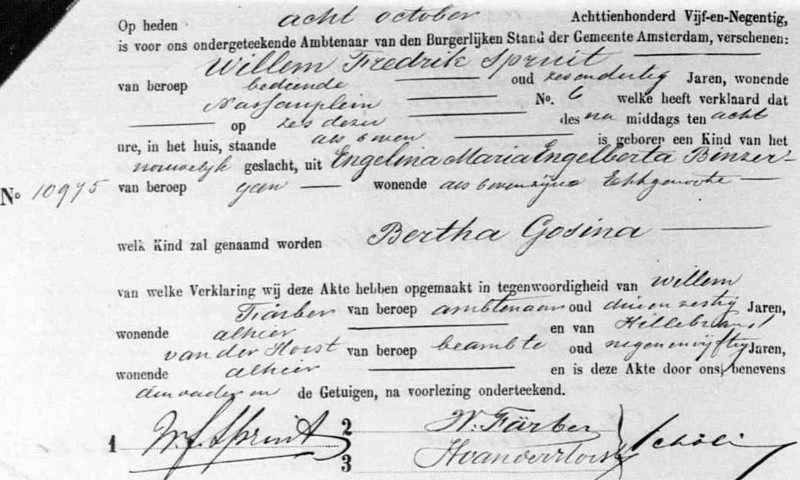 Op heden acht october Achttienhonderd Vijf-en-Negentig,
is voor ons ondergeteekende Ambtenaar van den Burgerlijken Stand der Gemeente Amsterdam, verschenen:
Willem Fredrik Spruit
van beroep bediende oud zesendertig Jaren, wonende
Nassauplein No. 6 welke heeft verklaard dat
op zes dezer des na middags ten acht
ure, in het huis, staande als boven is geboren een Kind van het
vrouwelijk geslacht, uit Engelina Maria Engelberta Binzer
No 10975 van beroep geen wonende als boven zijne Echtgenoote
welk Kind zal genaamd worden Bertha Gosina
van welke Verklaring wij deze Akte hebben opgemaakt in tegenwoordigheid van Willem
Färber van beroep ambtenaar oud drie en zestig Jaren,
wonende alhier en van Hillebrand
van der Horst van beroep beambte oud negenenvijftig Jaren,
wonende alhier en is deze Akte door ons, benevens
den vader en de Getuigen, na voorlezing onderteekend.
1 W. F. Spruit 2 W. Färber
3 H van der Horst